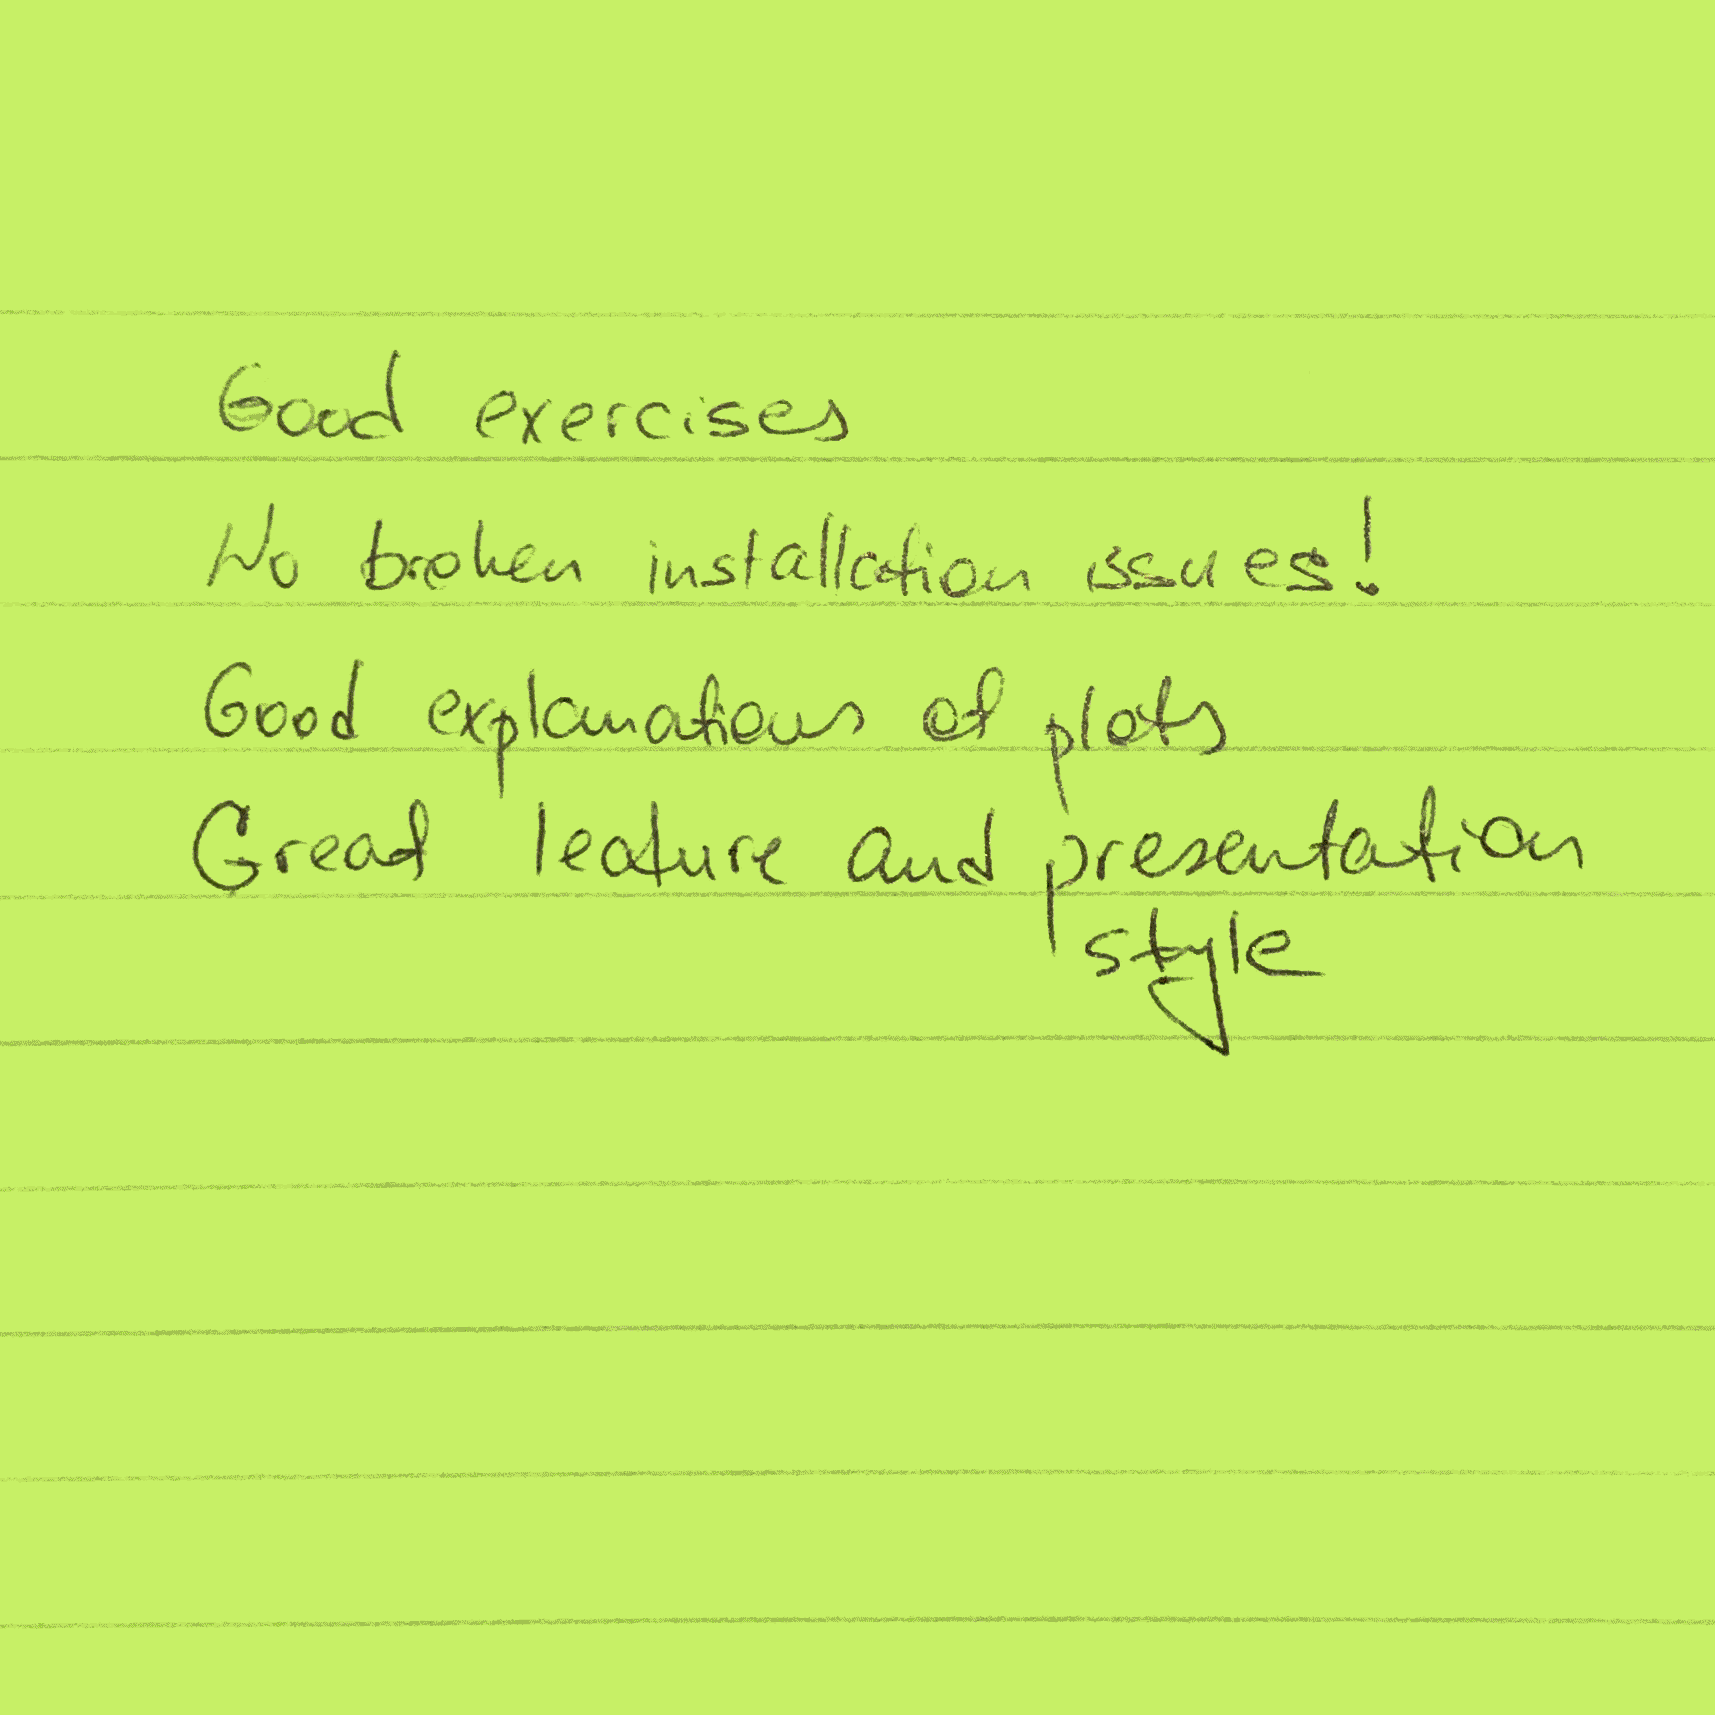 Good exercises
No broken installation issues!
Good explanations of plots
Great lecture and presentation
style